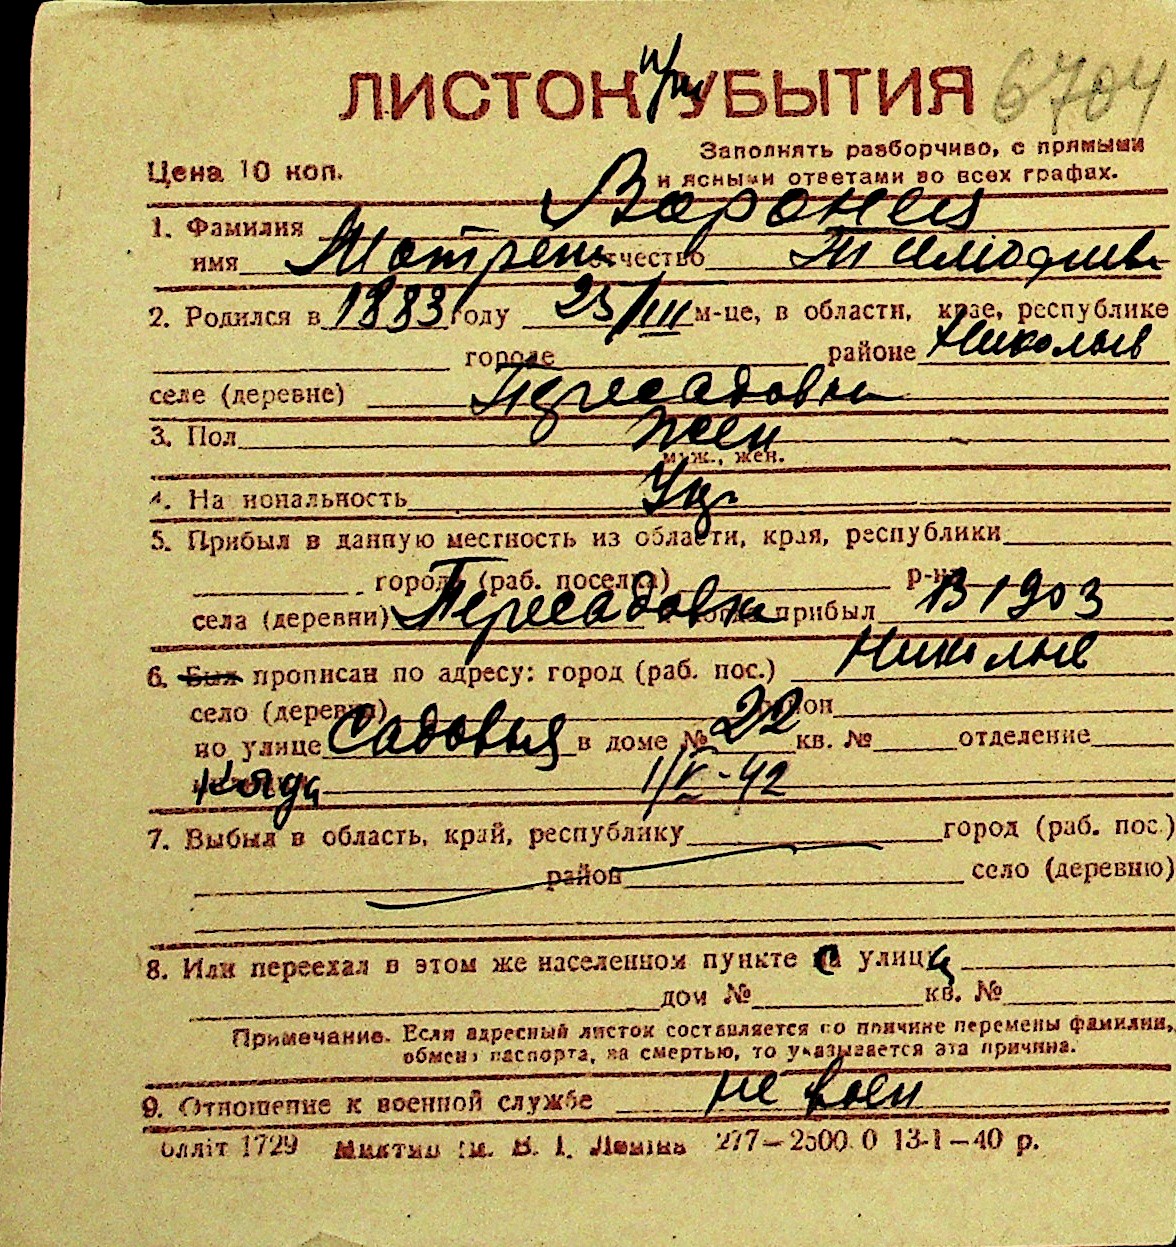 ЛИСТОК УБЫТИЯ 6704
Цена 10 коп.
Заполнять разборчиво, с прямыми
и ясными ответами во всех графах.
1. Фамилия Воронец
имя Мотрена отчество Тимофиев
2. Родился в 1883 году 25/III м-це, в области, крае, республике
городе районе Николаев
селе (деревне) Пересадовка
3. Пол жен
муж., жен.
4. Национальность Укр
5. Прибыл в данную местность из области, края, республики
города (раб. поселка) р-на
села (деревни) Пересадовка когда прибыл В 1903
6. Был прописан по адресу: город (раб. пос.) Николаев
село (деревня) район
по улице Садовыя в доме № 22 кв. № отделение
Когда 1/V-42
7. Выбыл в область, край, республику город (раб. пос.)
район село (деревню)
8. Или переехал в этом же населенном пункте с улицы
дом № кв. №
Примечание. Если адресный листок составляется по причине перемены фамилии,
обмена паспорта, за смертью, то указывается эта причина.
9. Отношение к военной службе не воен
Облліт 1729 ім. В. І. Леніна 277—2500.0 13-1—40 р.